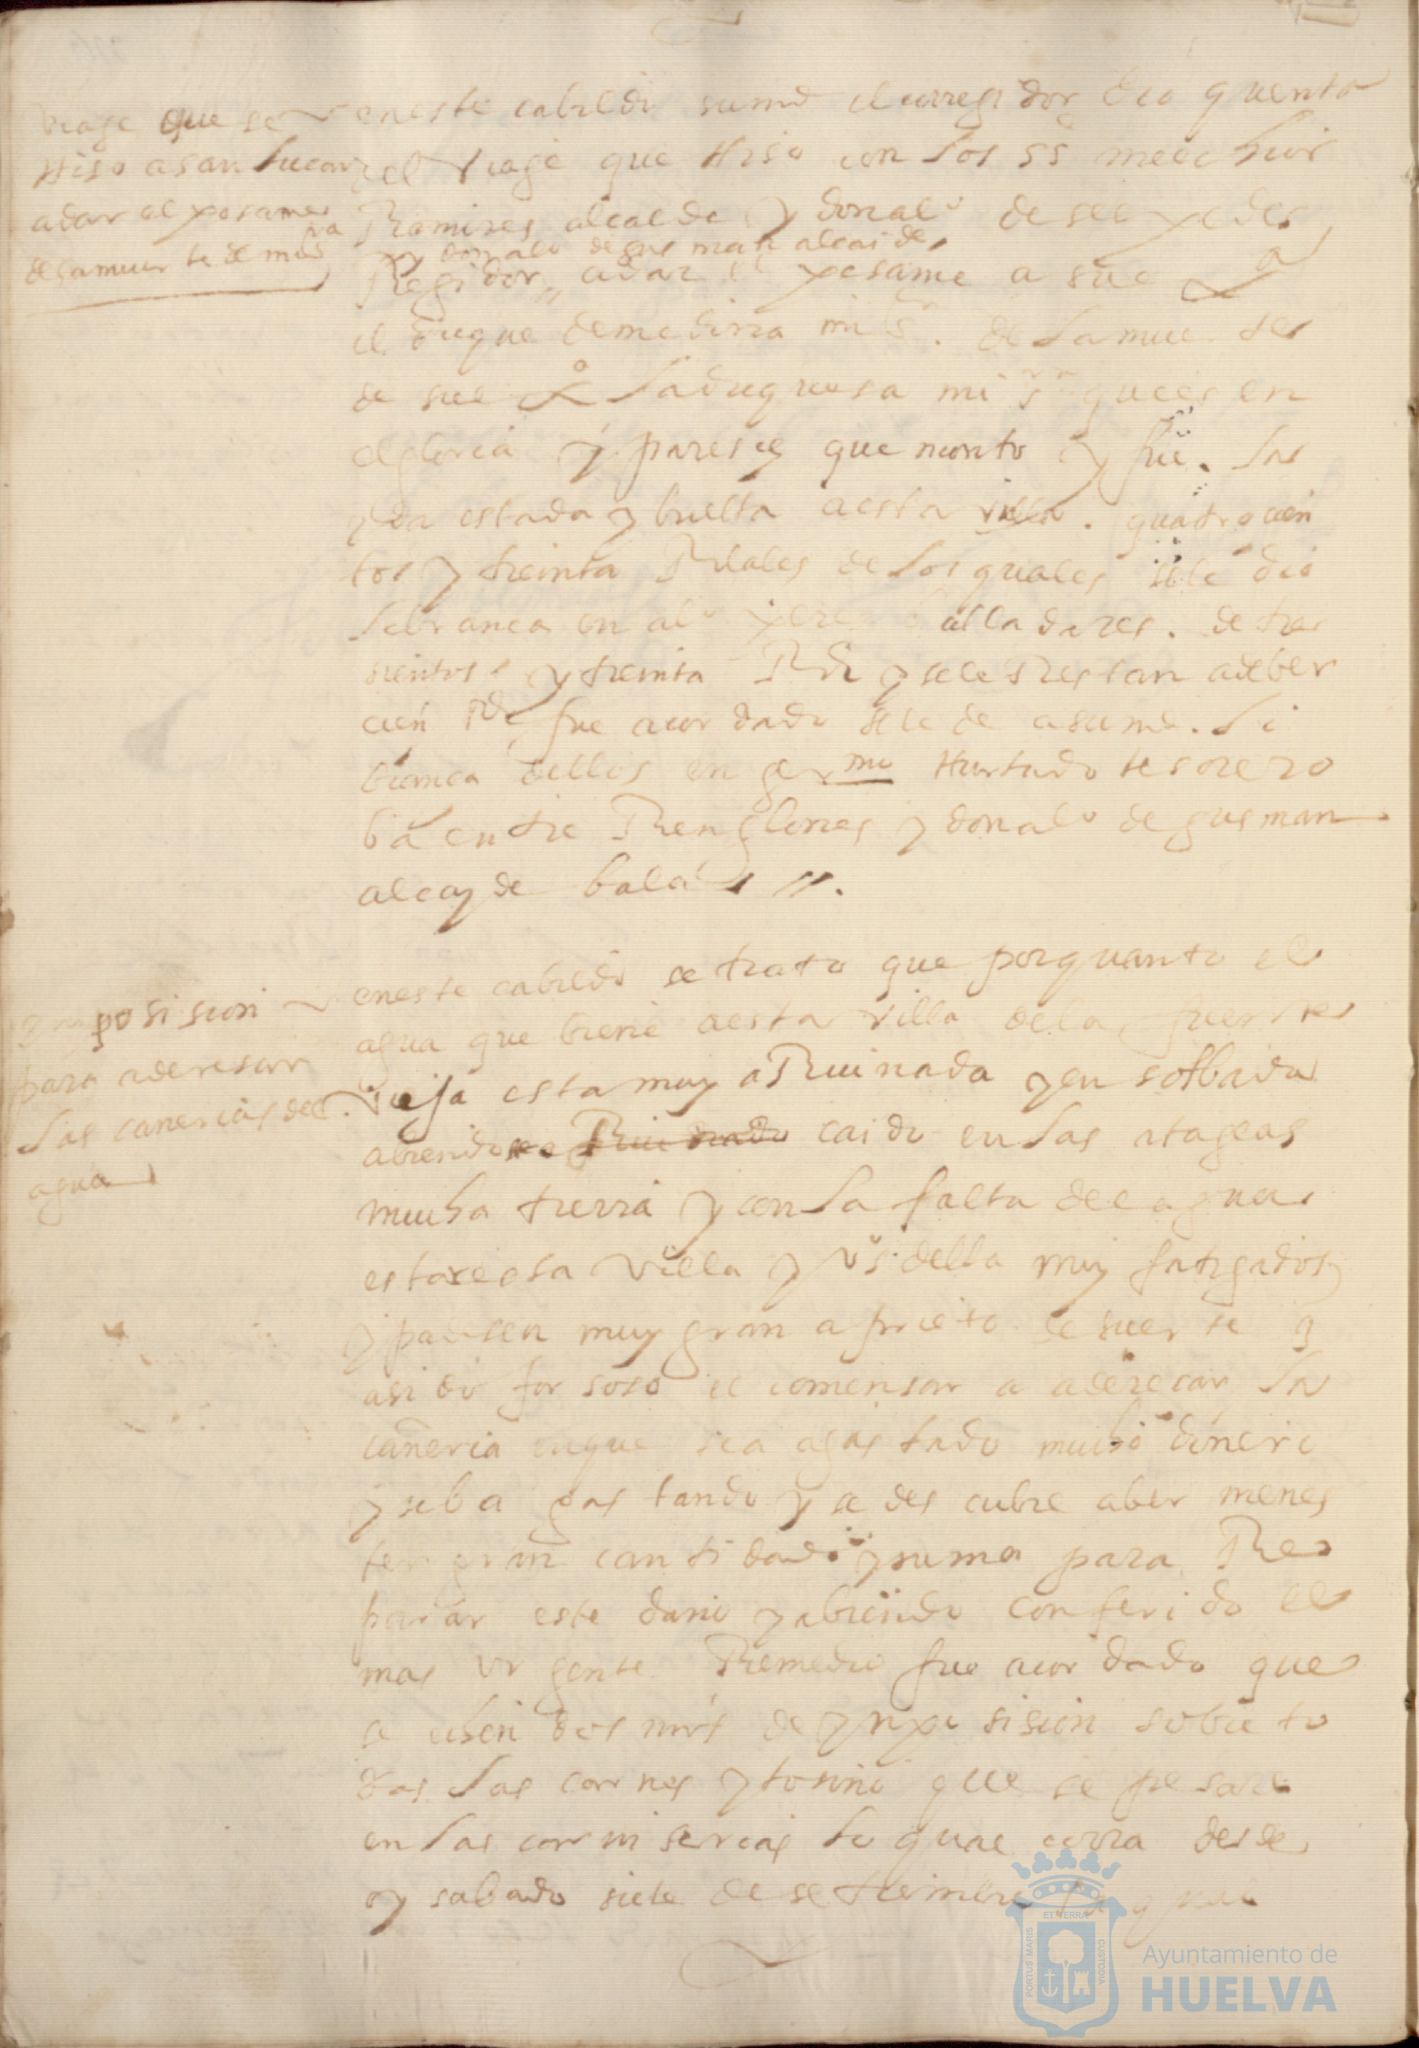 viage que se
Hiso a san lucar
a dar el pesame
de la muerte de mi sª
en este cabildo su md el corregidor dio quenta
del viage que Hiso con los ss melchior
Ramires alcalde y don alº de sespedes
y don alº de gusman alcaide
Regidor a dar el pesame a su exª
el duque de medina mi sr. de la muerte
de su exª la duquesa mi sª que es en
el gloria y parese que monto y fue. la
yda estada y buelta a esta villa. quatrocien
tos y treinta Reales de los quales se le dio
librança en alº peres balladares. de tres
sientos y treinta Rs y se le Restan a deber
cien Rs fue acordado se le de a su md. li
brança dellos en germo Hurtado tesorero
ba entre Renglones y don alº de gusman
alcayde bala //.
ynposision
para aderesar
las cañerias del
agua
en este cabildo se trato que por quanto el
agua que biene a esta villa de la fuente
vieja esta muy a Ruinada y ensolbada
abiendose Ruinado caido en las atageas
mucha tierra y con la falta del agua
esta esta villa y vºs della muy fatigados
y padesen muy gran aprieto de suerte q
a sido forsoso el comensar a aderesar la
cañeria en que se a gastado mucho dinero
y se ba gastando y se descubre aber menes
ter gran cantidad y suma para Re
parar este daño y abiendo conferido el
mas urgente Remedio fue acordado que
se echen dos mrs de ynposision sobre to
das las carnes y tosino que se pesare
en las carniserias lo qual corra desde
oy sabado siete de setiembre
Ayuntamiento de
HUELVA
PORTUS MARIS
ET TERRA
CUSTODIA